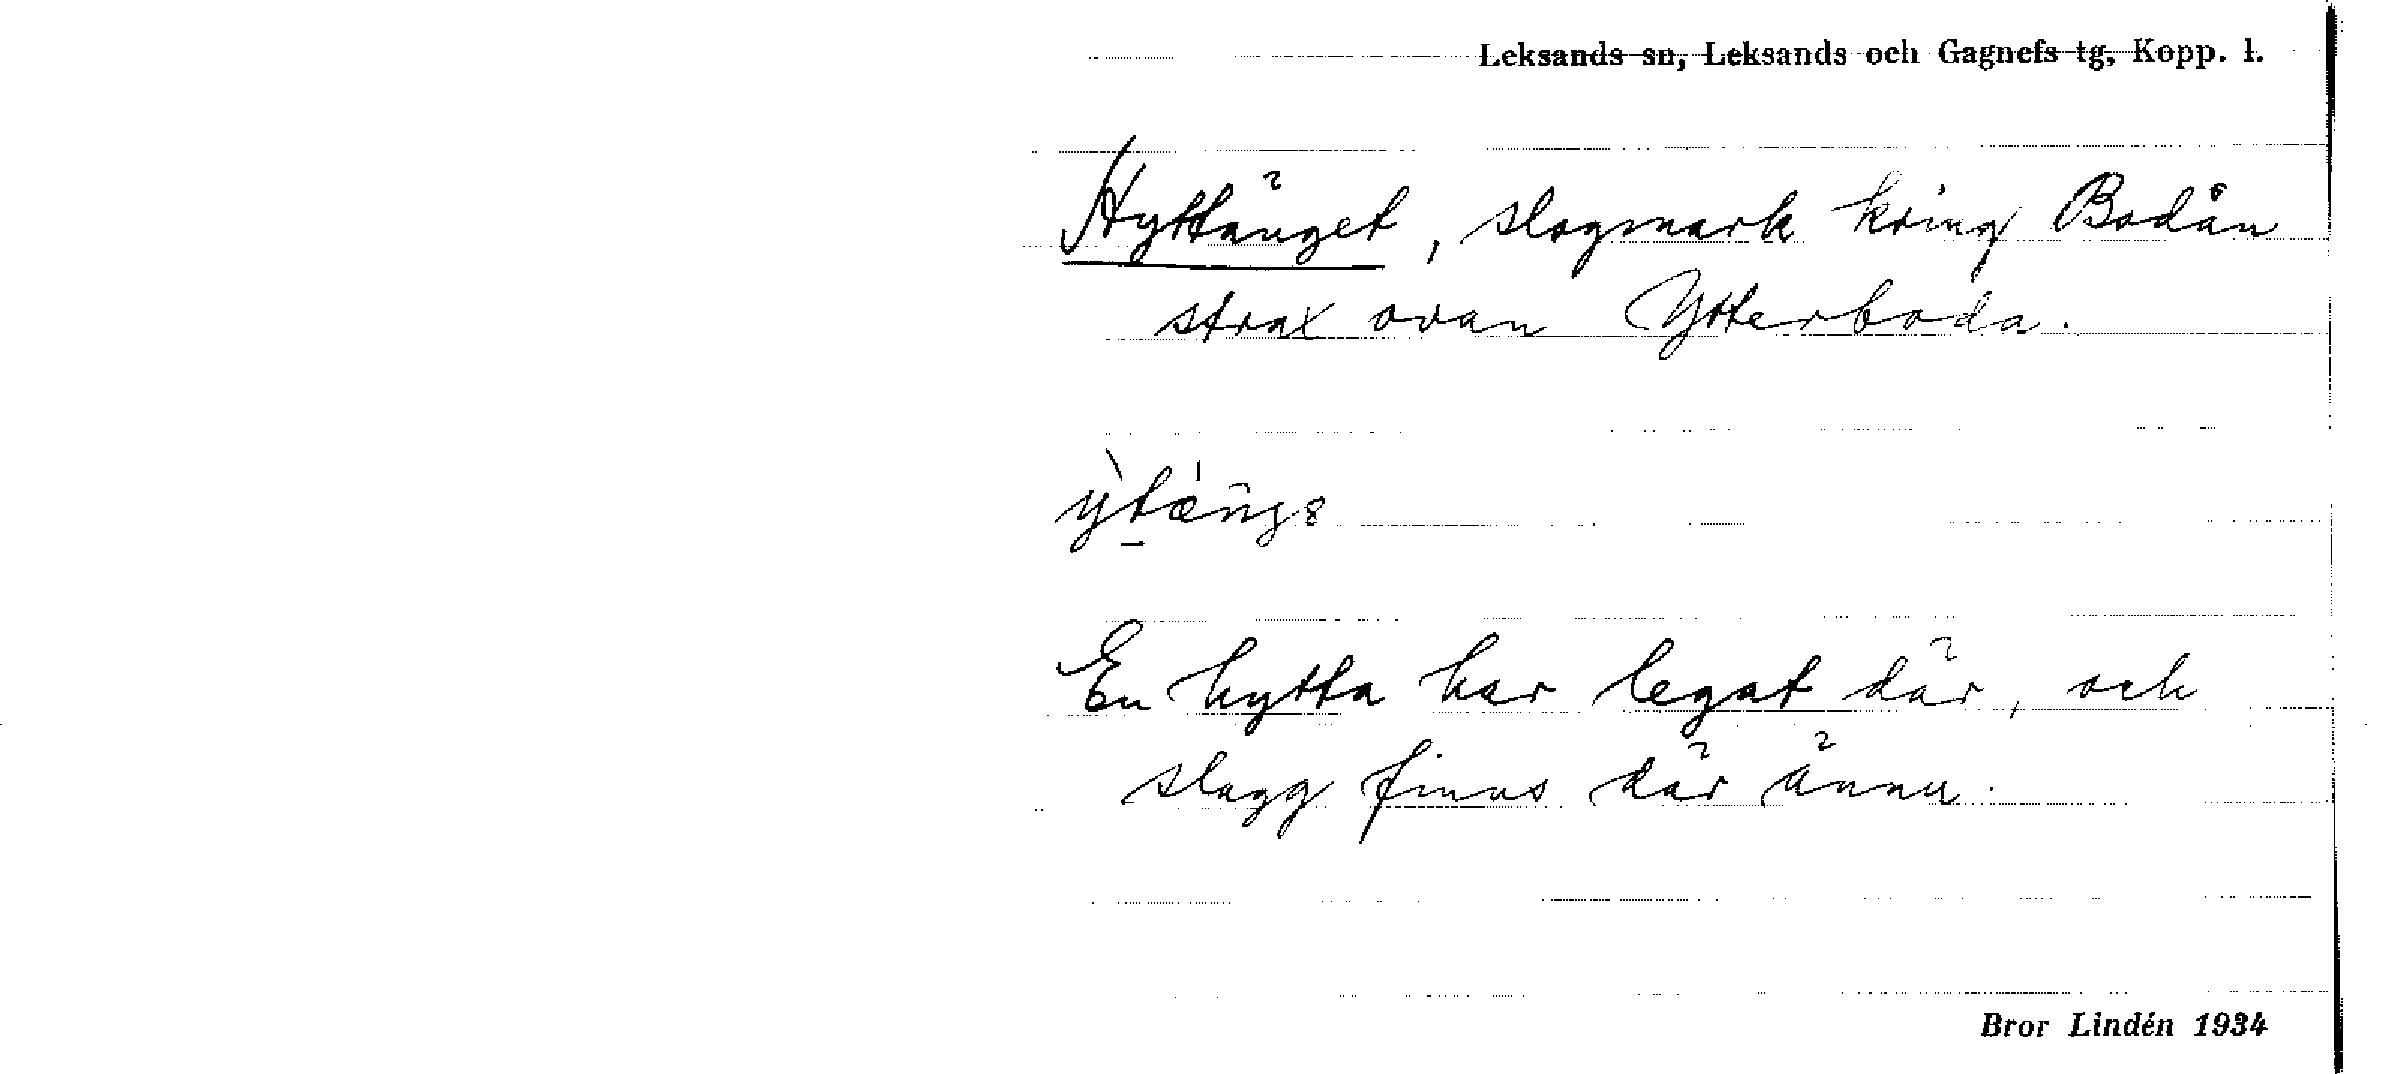 Leksands sn, Leksands och Gagnefs tg, Kopp. l.
Hyttänget, slogmark kring Bodån
strax ovan Ytterboda.
En hytta har legat där, och
slagg finns där ännu.
Bror Lindén 1934